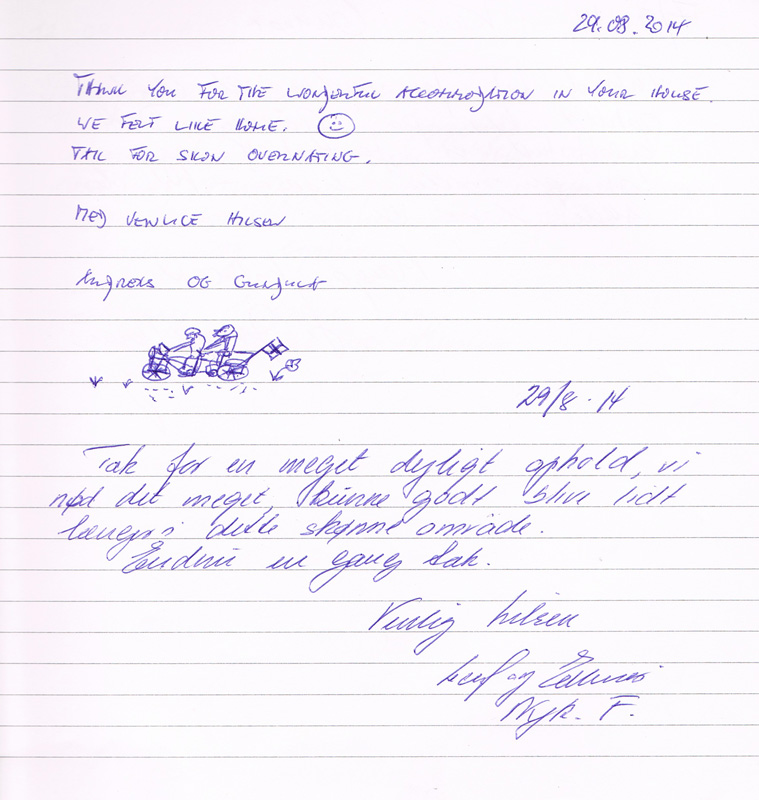 29.08.2014
THANK YOU FOR THE WONDERFUL ACCOMMODATION IN YOUR HOUSE.
WE FELT LIKE HOME.
TAK FOR SKØN OVERNATING.
MED VENLIGE HILSEN
ANDREAS OG
29/8 - 14
Tak for en meget dejligt ophold, vi
nød det meget, kunne godt blive lidt
længer i dette skønne område.
Endnu en gang tak.
Venlig hilsen
Leif og
Nyk. F.